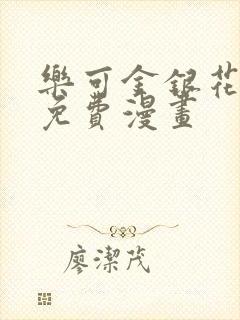 樂可金銀花
免費漫畫
廖潔茂